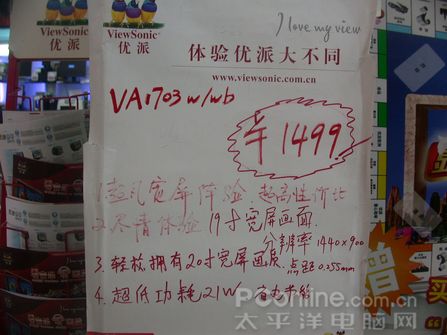 ViewSonic
优派
ViewSonic
优派
I love my view
体验优派大不同
www.viewsonic.com.cn
VA1703w/wb
¥1499
1.超凡宽屏体验,超高性价比
2.尽情体验19寸宽屏画面
分辨率1440×900
3.轻松拥有20寸宽屏画质 点距0.255mm
4.超低功耗21W
PConline.com.cn
太平洋电脑网